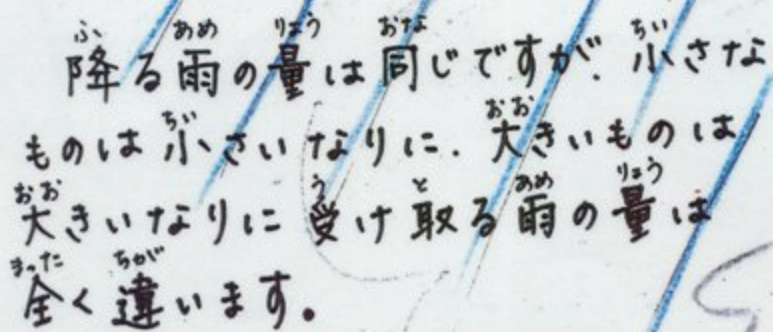 降る雨の量は同じですが、小さな
ものは小さいなりに、大きいものは
大きいなりに受け取る雨の量は
全く違います。